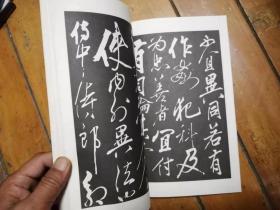 不宜異同若有
作奸犯科及
為忠善者宜付
有司論
使內外異法
侍中侍郎郭